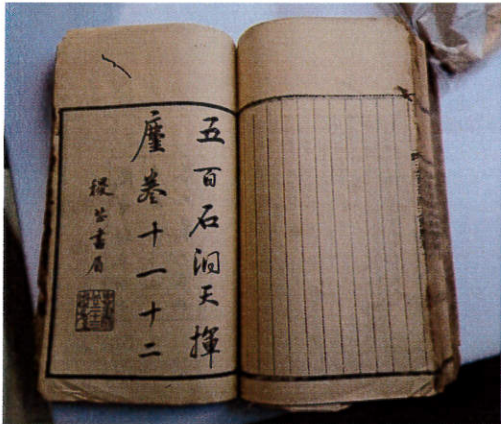 五百石洞天揮
麈卷十一十二
書眉